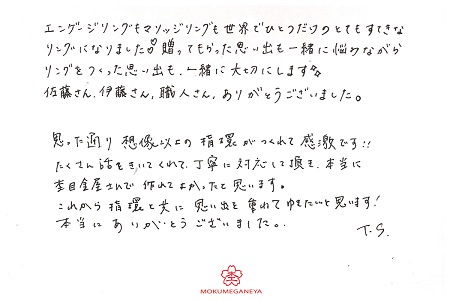 エンゲージリングもマリッジリングも世界でひとつだけのとてもすてきな
リングになりました!!贈ってもらった思い出も一緒に悩みながら
リングをつくった思い出も、一緒に大切にします☆
佐藤さん、伊藤さん、職人さん、ありがとうございました。
思った通り 想像以上の 指環がつくれて 感激です!!
たくさん話をきいてくれて、丁寧に対応して頂き、本当に
杢目金屋さんで 作れてよかったと思います。
これから 指環と共に 思い出を 重ねてゆきたいと思います!
本当に ありがとうございました。 T.S.
杢
MOKUMEGANEYA